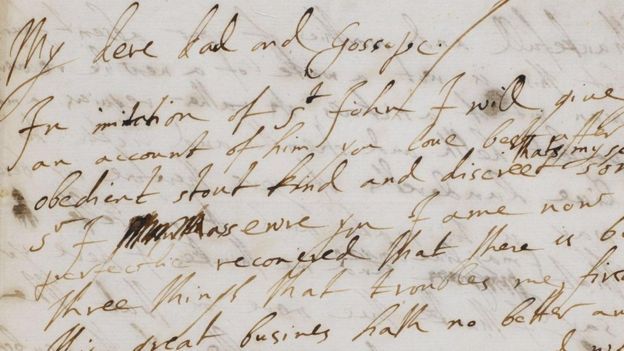 My dere dad and Gossope.
In imitation of St John I will give
an account of him you love best after
thats my se
obedient stout kind and discreet son
St I assewre you I ame now
perfectlie recovered that there is b
three things that troubles me, first
this great busines hath no better an